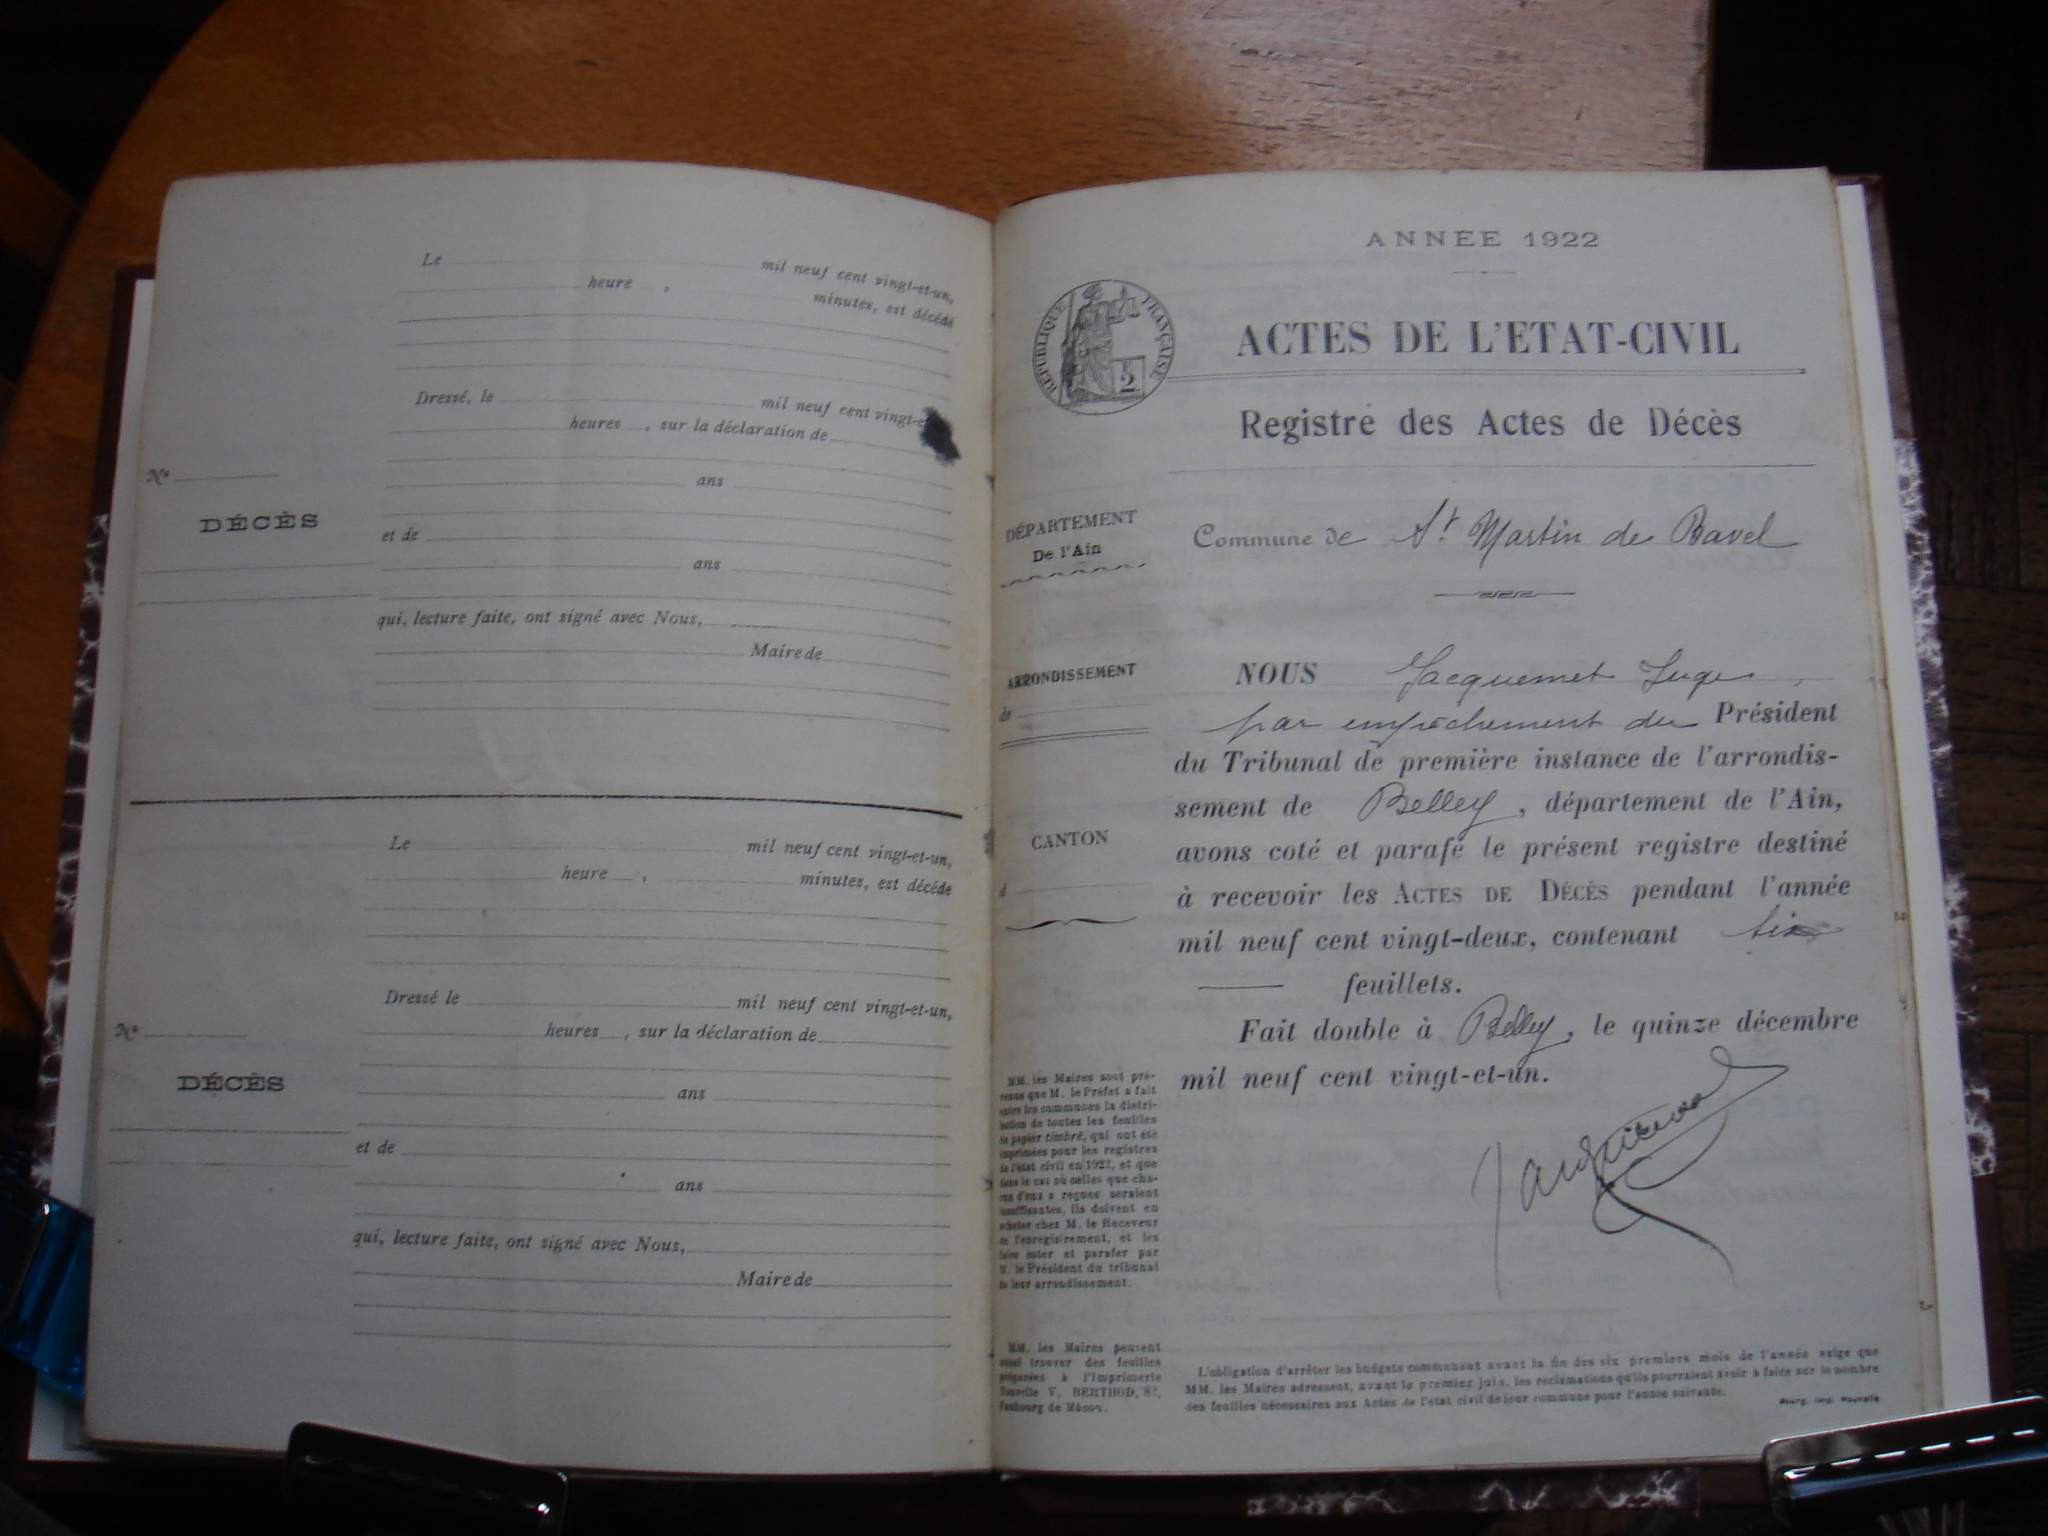 Le mil neuf cent vingt-et-un,
heure , minutes, est décédé
Dressé, le mil neuf cent
heures , sur la déclaration de
ans
No
DÉCÈS
et de
ans
qui, lecture faite, ont signé avec Nous,
Maire de
Le mil neuf cent vingt-et-un,
heure , minutes, est décédé
Dressé le mil neuf cent vingt-et-un,
heures , sur la déclaration de
No
ans
DÉCÈS
et de
ans
qui, lecture faite, ont signé avec Nous,
Maire de
ANNÉE 1922
RÉPUBLIQUE FRANÇAISE
2
ACTES DE L'ETAT-CIVIL
Registre des Actes de Décès
DÉPARTEMENT
De l'Ain
Commune de St Martin de Bavel
ARRONDISSEMENT
de
CANTON
d
NOUS Jacquemet Juge,
par empêchement du Président
du Tribunal de première instance de l'arrondis-
sement de Belley, département de l'Ain,
avons coté et parafé le présent registre destiné
à recevoir les ACTES DE DÉCÈS pendant l'année
mil neuf cent vingt-deux, contenant six
feuillets.
Fait double à Belley, le quinze décembre
mil neuf cent vingt-et-un.
Jacquemet
MM. les Maires sont pré-
venus que M. le Préfet a fait
entre les communes la distri-
bution de toutes les feuilles
de papier timbré, qui ont été
imprimées pour les registres
de l'état civil en 1922, et que
dans le cas où celles que cha-
cun d'eux a reçues seraient
insuffisantes, ils doivent en
acheter chez M. le Receveur
de l'enregistrement, et les
faire coter et parafer par
M. le Président du tribunal
de leur arrondissement.
MM. les Maires peuvent
aussi trouver des feuilles
préparées à l'Imprimerie
Nouvelle V. BERTHOD,
Faubourg de Mâcon.
L'obligation d'arrêter les budgets communaux avant la fin des six premiers mois de l'année exige que
MM. les Maires adressent, avant le premier juin, les réclamations qu'ils pourraient avoir à faire sur le nombre
des feuilles nécessaires aux Actes de l'état civil de leur commune pour l'année suivante.
Bourg, Imp. Nouvelle